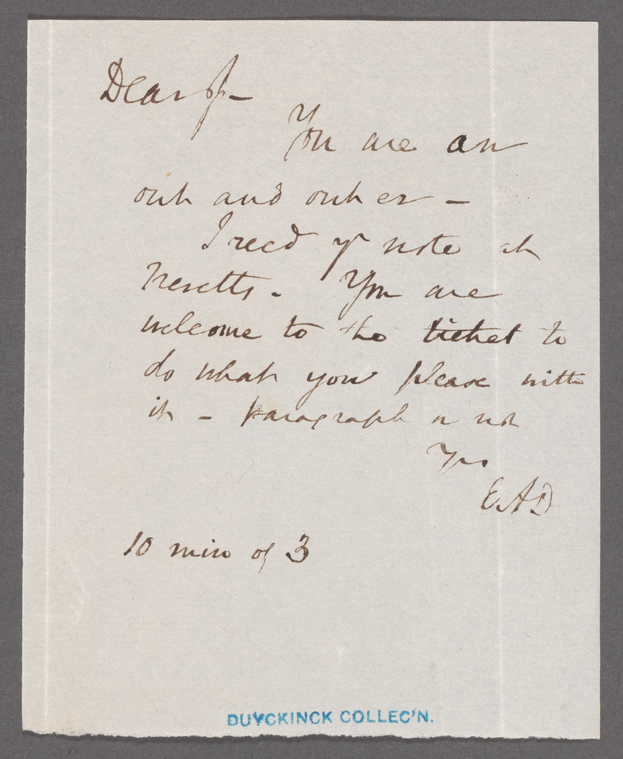 Dear J—
You are an
out and outer —
I recd yr note at
. You are
welcome to the ticket to
do what you please with
it — paragraph or not
Yrs
EAD
10 min of 3
DUYCKINCK COLLEC'N.